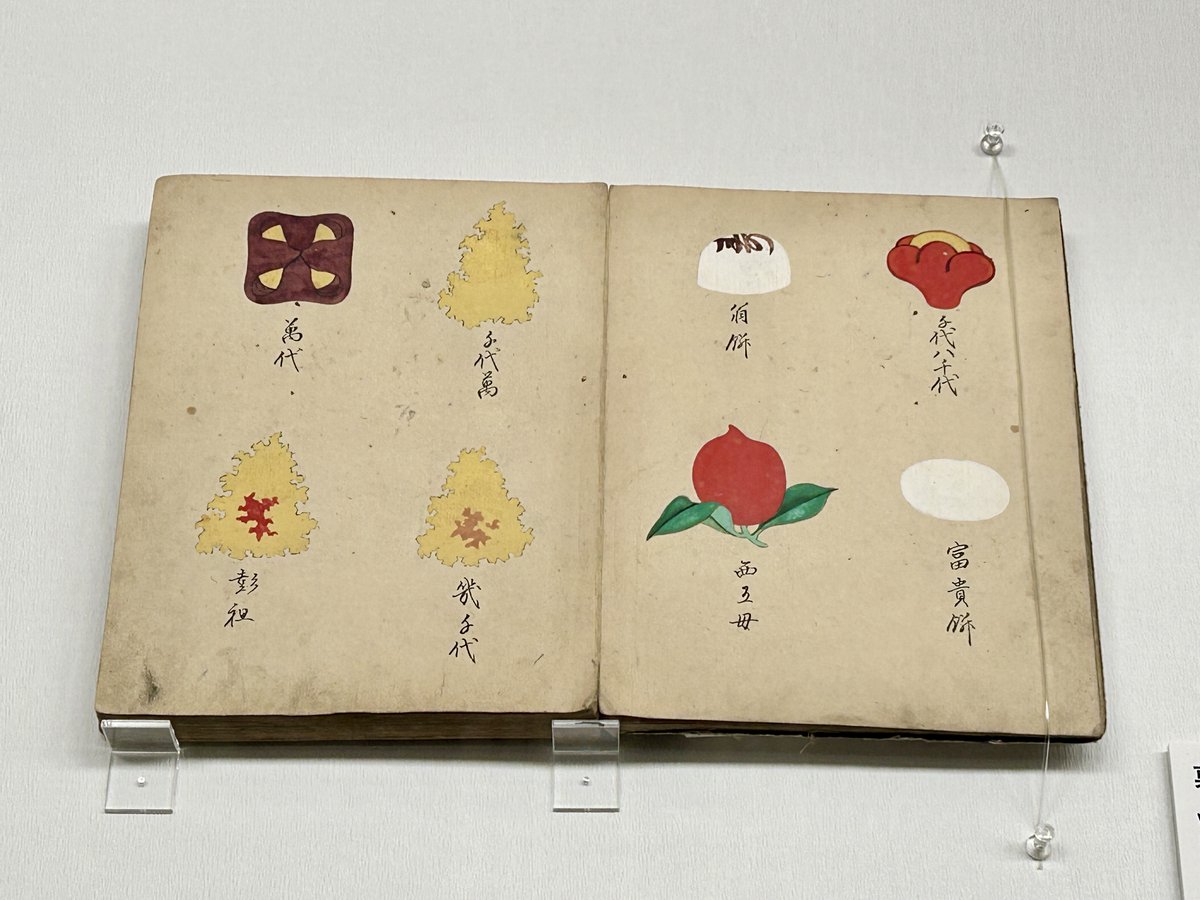 千代八千代
富貴餅
餅
西王母
千代萬
幾千代
萬代
彭祖